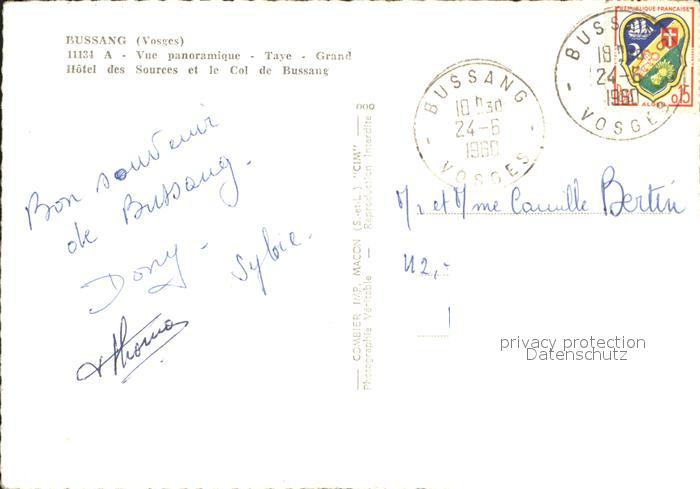 BUSSANG (Vosges)
11134 A - Vue panoramique - Taye - Grand
Hôtel des Sources et le Col de Bussang
Bon souvenir
de Bussang.
Dony - Sylvie.
Thomas
COMBIER IMP. MACON (S.-et-L.) "CIM"
Photographie Véritable - Reproduction Interdite
BUSSANG
18 H 30
24-6
1960
VOSGES
BUSSANG
18 H 30
24-6
1960
VOSGES
REPUBLIQUE FRANÇAISE
0,15
ALGER
Mr et Mme Camille Bertin
42,-
privacy protection
Datenschutz